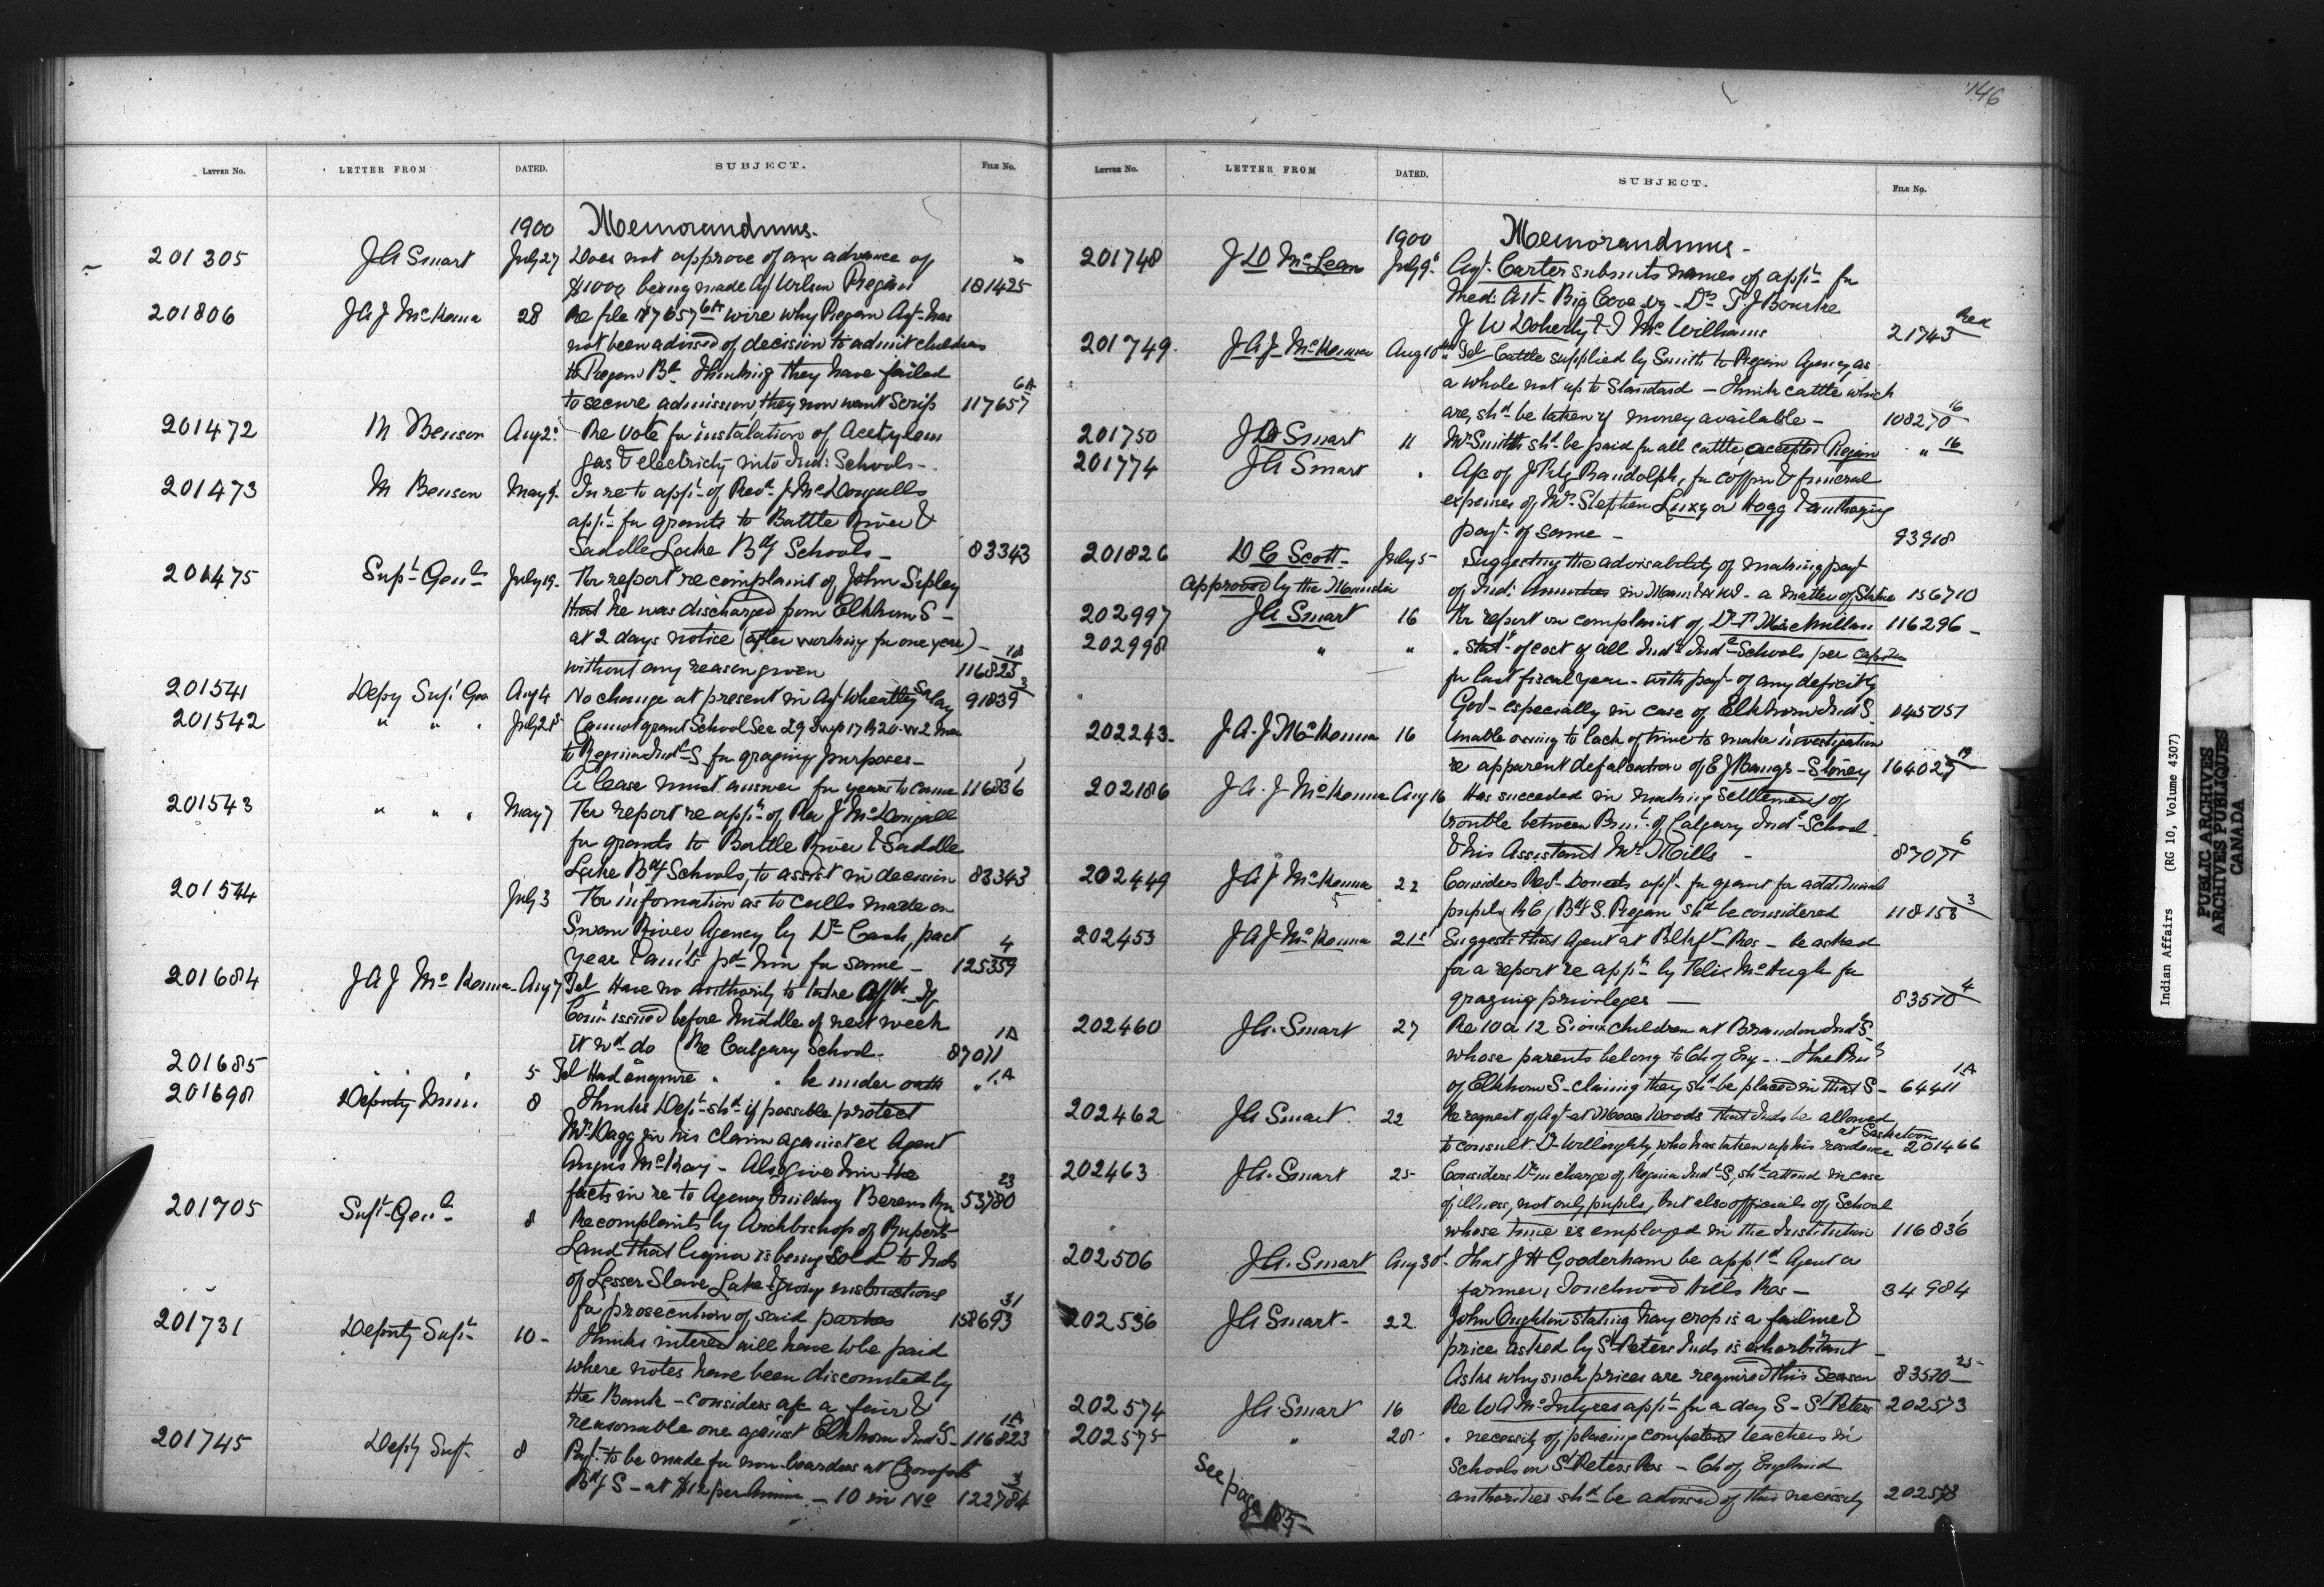 146
LETTER NO. LETTER FROM DATED. SUBJECT. FILE NO.
1900 Memorandums.
201305 J A Smart July 27 Does not approve of an advance of
$1000 being made Agt Wilson Piegan 181425
201806 J A J McKenna 28 Re file 117657 6A wire why Piegan Agt has
not been advised of decision to admit children
to Piegan Bd. Thinking they have failed
to secure admission, they now want Scrip 117657 6A
201472 M Benson Aug 2 Re Vote for instalation of Acetylene
gas & electricity into Ind: Schools -
201473 M Benson May 9 In re to appt of Revd J McDougalls
appn for grants to Battle River &
Saddle Lake Bdg Schools - 83343
201475 Supt Genl July 19 For report re complaint of John Sipley
that he was discharged from Elkhorn S -
at 2 days notice (after working for one year) -
without any reason given 116825 18
201541 Depy Supt Gen Aug 4 No change at present in Agt Wheatley Salary 91839 3
201542 " " " July 28 Cannot grant School Sec 29 Twp 17 R 20 W 2 Mer
to Regina Indl S for grazing purposes -
A lease must answer for years to come 116836 1
201543 " " " May 7 For report re appn of Rev J McDougall
for grants to Battle River & Saddle
Lake Bdg Schools, to assist in decision 83343
201544 July 3 For information as to calls made on
Swan River Agency by Dr Cash, past
year & amts pd him for same - 125359 4
201684 J A J McKenna Aug 7 Tel Have no authority to take affts If
Comn issued before middle of next week
it wd do (Re Calgary School - 87071 1A
201685 " " 5 Tel Had enquire " " be under oath " 1A
201698 Deputy Min. 8 Thinks Dept shd if possible protect
Mr Dagg in his claim against ex Agent
Angus McKay - Also give him the
facts in re to Agency building Berens Rvr 53780 23
201705 Supt Genl 8 Re complaints by Archbishop of Ruperts
Land that liquor is being sold to Inds
of Lesser Slave Lake & giving instructions
for prosecution of said parties 158693 31
201731 Deputy Supt 10 - Thinks interest will have to be paid
where notes have been discounted by
the Bank - considers a/c a fair &
reasonable one against Elkhorn Indl S - 116823 1A
201745 Depty Supt 8 Pyt to be made for non-boarders at Crowfoot
Bdg S - at $12 per Annum - 10 in No 122784 3
LETTER NO. LETTER FROM DATED. SUBJECT. FILE NO.
1900 Memorandums -
201748 J D McLean July 9 Agt. Carter submits names of appts for
Med: Att- Big Cove viz - Drs T. J Bourke
J W Doherty & J McWilliams 21743 Red
201749 J A J McKenna Aug 10th Tel - Cattle supplied by Smith to Piegan Agency, as
a whole not up to Standard - Think cattle which
are, shd be taken if money available - 108270 16
201750 J A Smart 11 Mr Smith shd be paid for all cattle accepted Piegan " 16
201774 J A Smart " A/c of J Fitz Randolph, for coffin & funeral
expenses of Mrs Stephen Luxy or Hogg & authozing
payt of same - 93918
201826 D C Scott - July 5 Suggesting the advisability of making payt
Approved by the Minister of Ind: Annuities in Man: & NW - a matter of Statute 156710
202997 J A Smart 16 For report on complaint of Dr T. MacMillan 116296 -
202998 " " " Statt of cost of all Indn Indl Schools per capita
for last fiscal year - with payt of any deficit by
Govt - especially in case of Elkhorn Indl S. 145057
202243 - J. A. J McKenna 16 Unable owing to lack of time to make investigation
re apparent defalcation of E J Bangs - Stoney 164025 19
202186 J. A. J McKenna Aug 16 Has succeded in making settlement of
trouble between Prinl of Calgary Indl School
& his Assistant Mr Mills - 87071 6
202449 J A J McKenna 22 Considers Revd Doucets appn for grant for additional
pupils R C/ Bdg S. Piegan shd be considered 118158 3
202453 J A J McKenna 21st Suggests that Agent at Blkft Res - be asked
for a report re appn by Felix McHugh for
grazing privileges - 83570 4
202460 J A. Smart 27 Re 10 or 12 Sioux children at Brandon Indl S.
whose parents belong to Ch of Eng - The Prinl
of Elkhorn S - claiming they shd be placed in that S - 64411 1A
202462 J A. Smart 22 Re request of Agt at Moose Woods that Inds be allowed
to consult Dr Willoughby, who has taken up his residence at Saskatoon 201466
202463 J A. Smart 25 Considers Dr in charge of Regina Indl S, shd attend in case
of illness, not only pupils, but also officials of School
whose time is employed in the Institution 116836 1
202506 J A. Smart Aug 30 - That J H Gooderham be apptd Agent or
farmer, Touchwood Hills Res - 34984
202536 J A Smart - 22 John Oughton stating hay crop is a failure &
price asked by St Peters Inds is exhorbitant -
Asks why such prices are required this Season 83570 25
202574 J A Smart 16 Re W A McIntyres appn for a day S - St Peters 202573
202575 " 28 " necessity of placing competent teachers in
Schools on St Peters Res - Ch of England
authorities shd be advised of this necessity 202573
See page 185 -
Indian Affairs (RG 10, Volume 4307)
PUBLIC ARCHIVES
ARCHIVES PUBLIQUES
CANADA